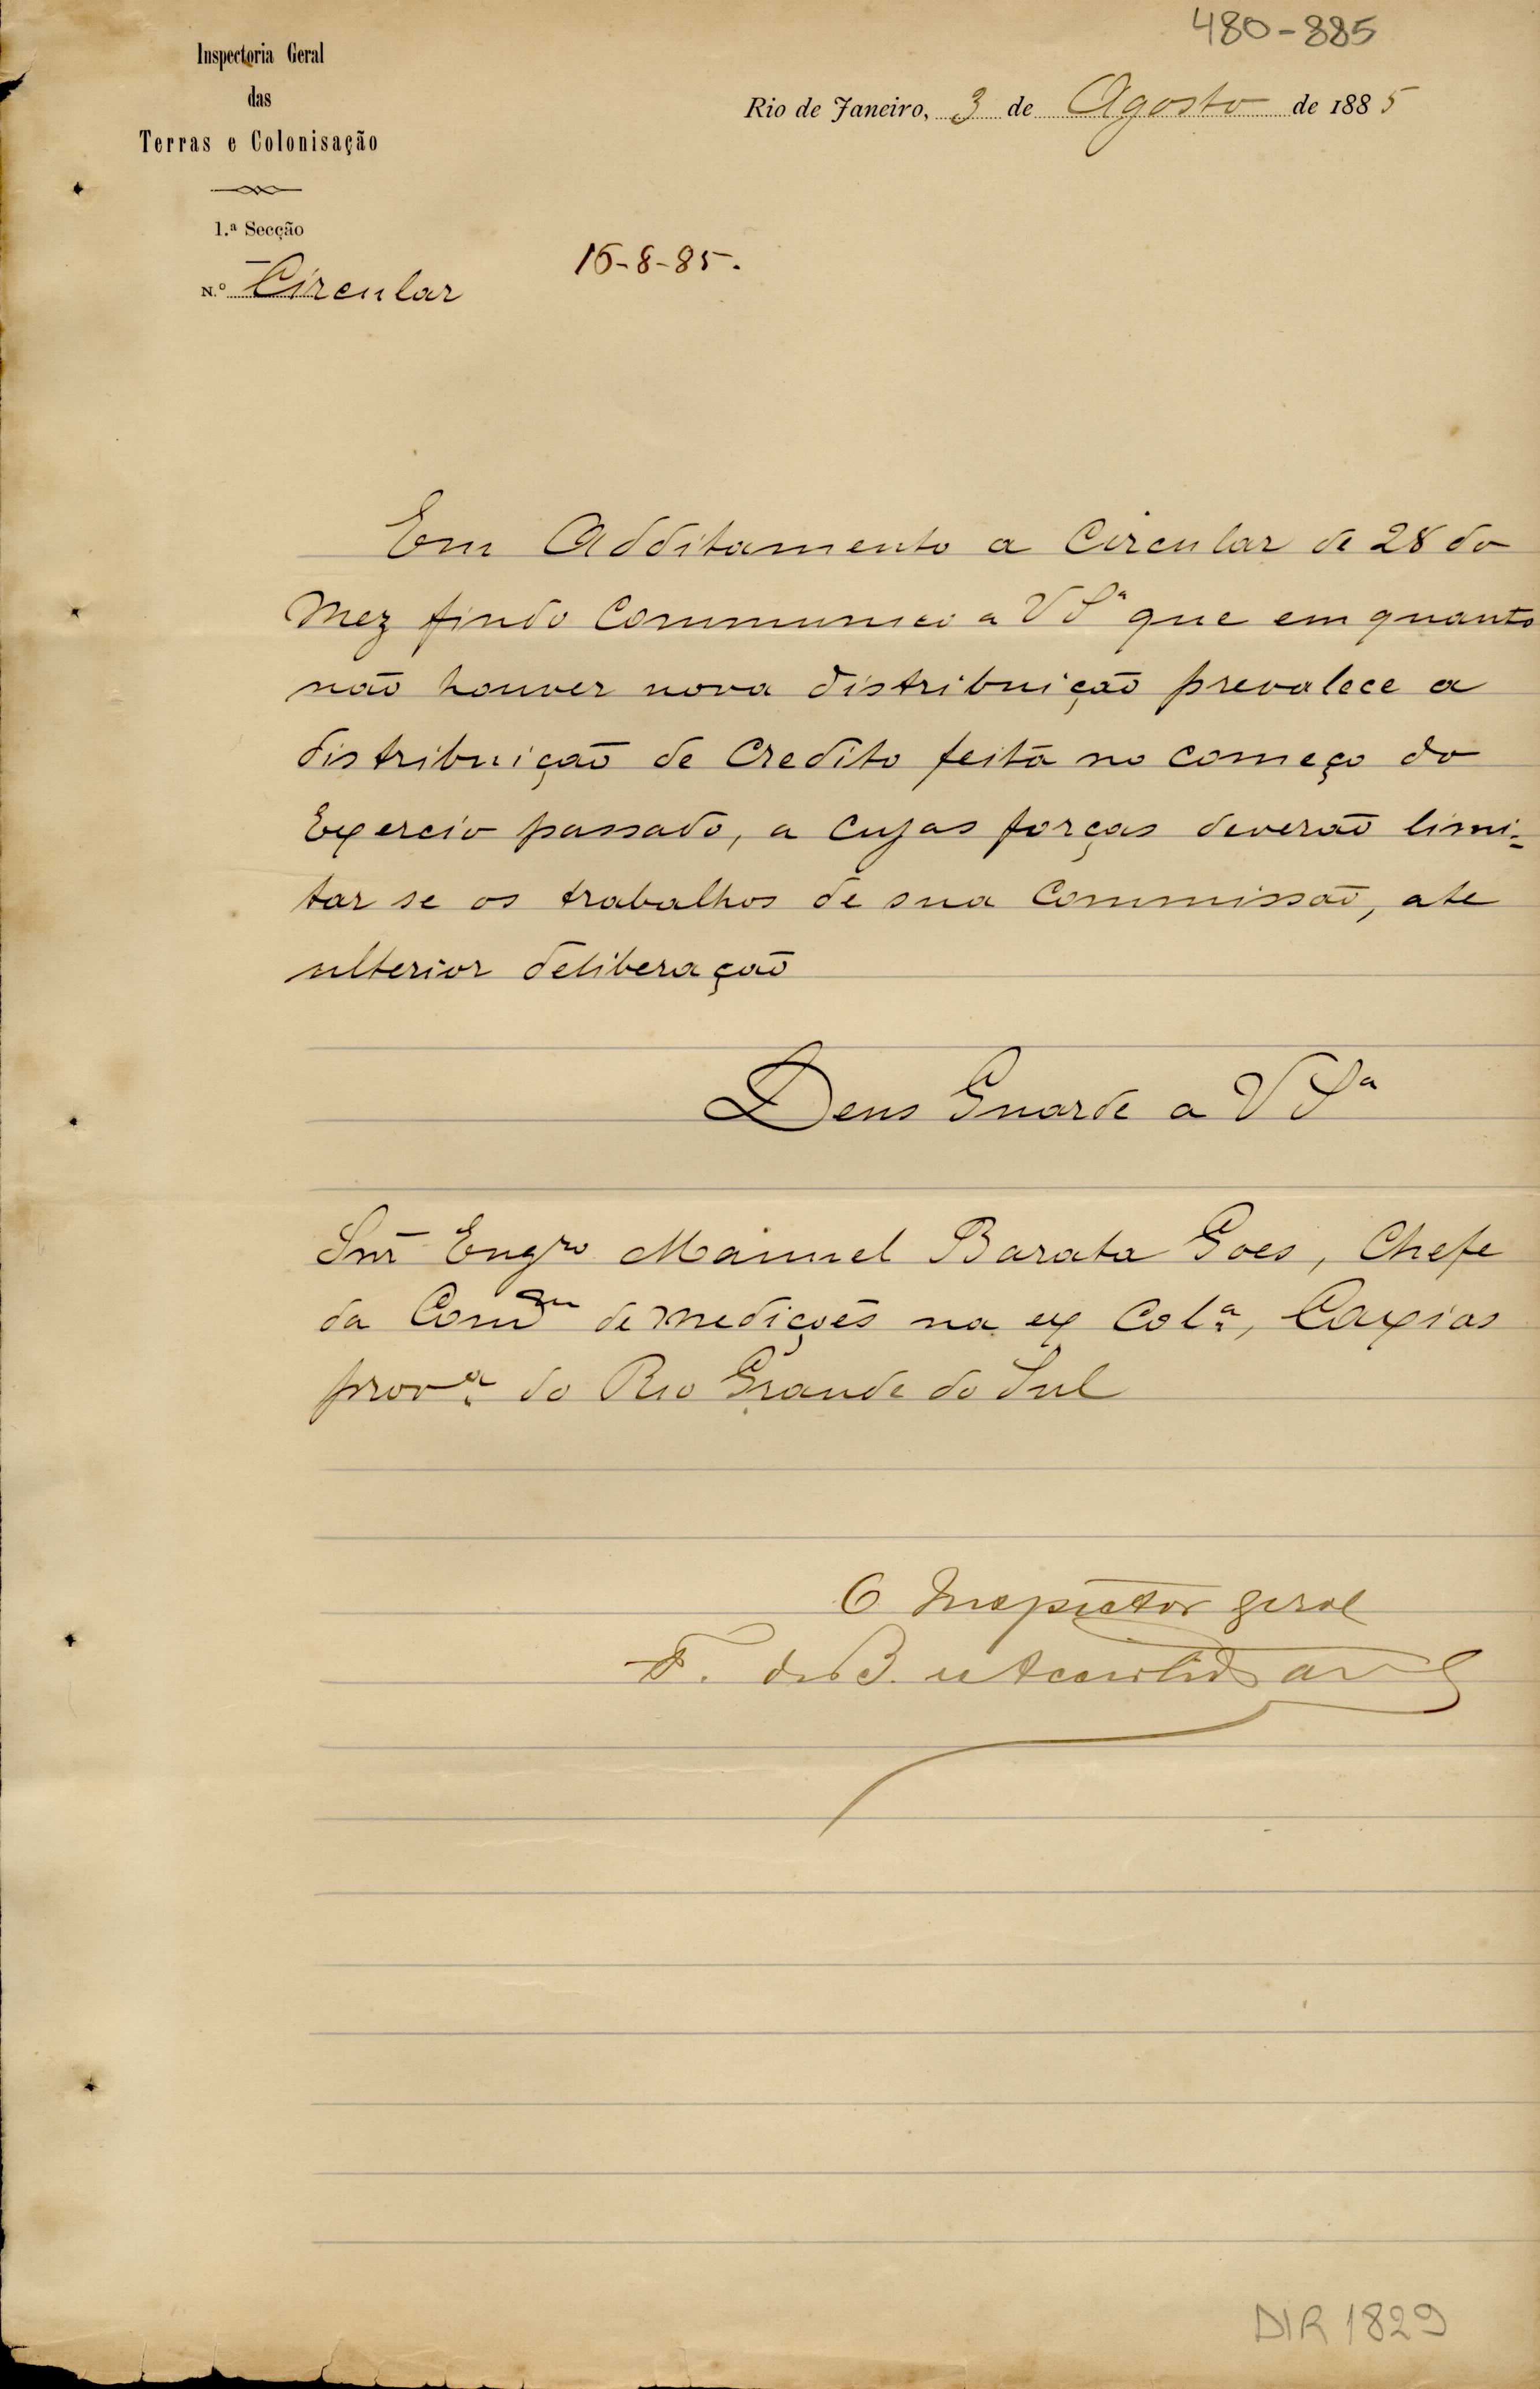 480-885
Inspectoria Geral
das
Terras e Colonisação
Rio de Janeiro, 3 de Agosto de 1885
1.ª Secção
N.º Circular
16-8-85.
Em Additamento a Circular de 28 do
Mez findo communico a V Sª que em quanto
não houver nova distribuição prevalece a
distribuição de Credito feita no começo do
Exercio passado, a cujas forças deverão limi-
tar se os trabalhos de sua Commissão, ate
ulterior deliberação
Deus Guarde a V Sª
Snr Engro Manuel Barata Goes, Chefe
da Comm de medições na ex Colª, Caxias
provª do Rio Grande do Sul
O Inspector geral
F. de B. e Accioli de
DIR 1829